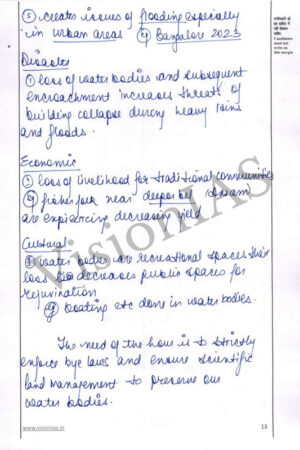 ③ creates issues of flooding especially
in urban areas eg Bangalore 2023
Disaster
① loss of water bodies and subsequent
encroachment increases threats of
building collapse during heavy rains
and floods.
Economic
① loss of livelihood for traditional communities
eg fisherfolk near deepor beel (Assam)
are experiencing decreasing yield
Cultural
① water bodies are recreational spaces their
loss decreases public spaces for
rejuvination
eg boating etc done in water bodies.
The need of the hour is to strictly
enforce bye laws and ensure scientific
land management to preserve our
water bodies.
VisionIAS
Candidates
must not
write on
this margin
www.visionias.in
13